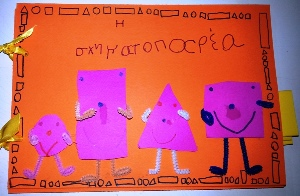 Η
σχηματοπαρέα